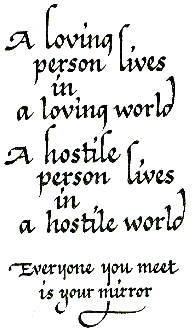 A loving
person lives
in
a loving world
A hostile
person lives
in
a hostile world
Everyone you meet
is your mirror